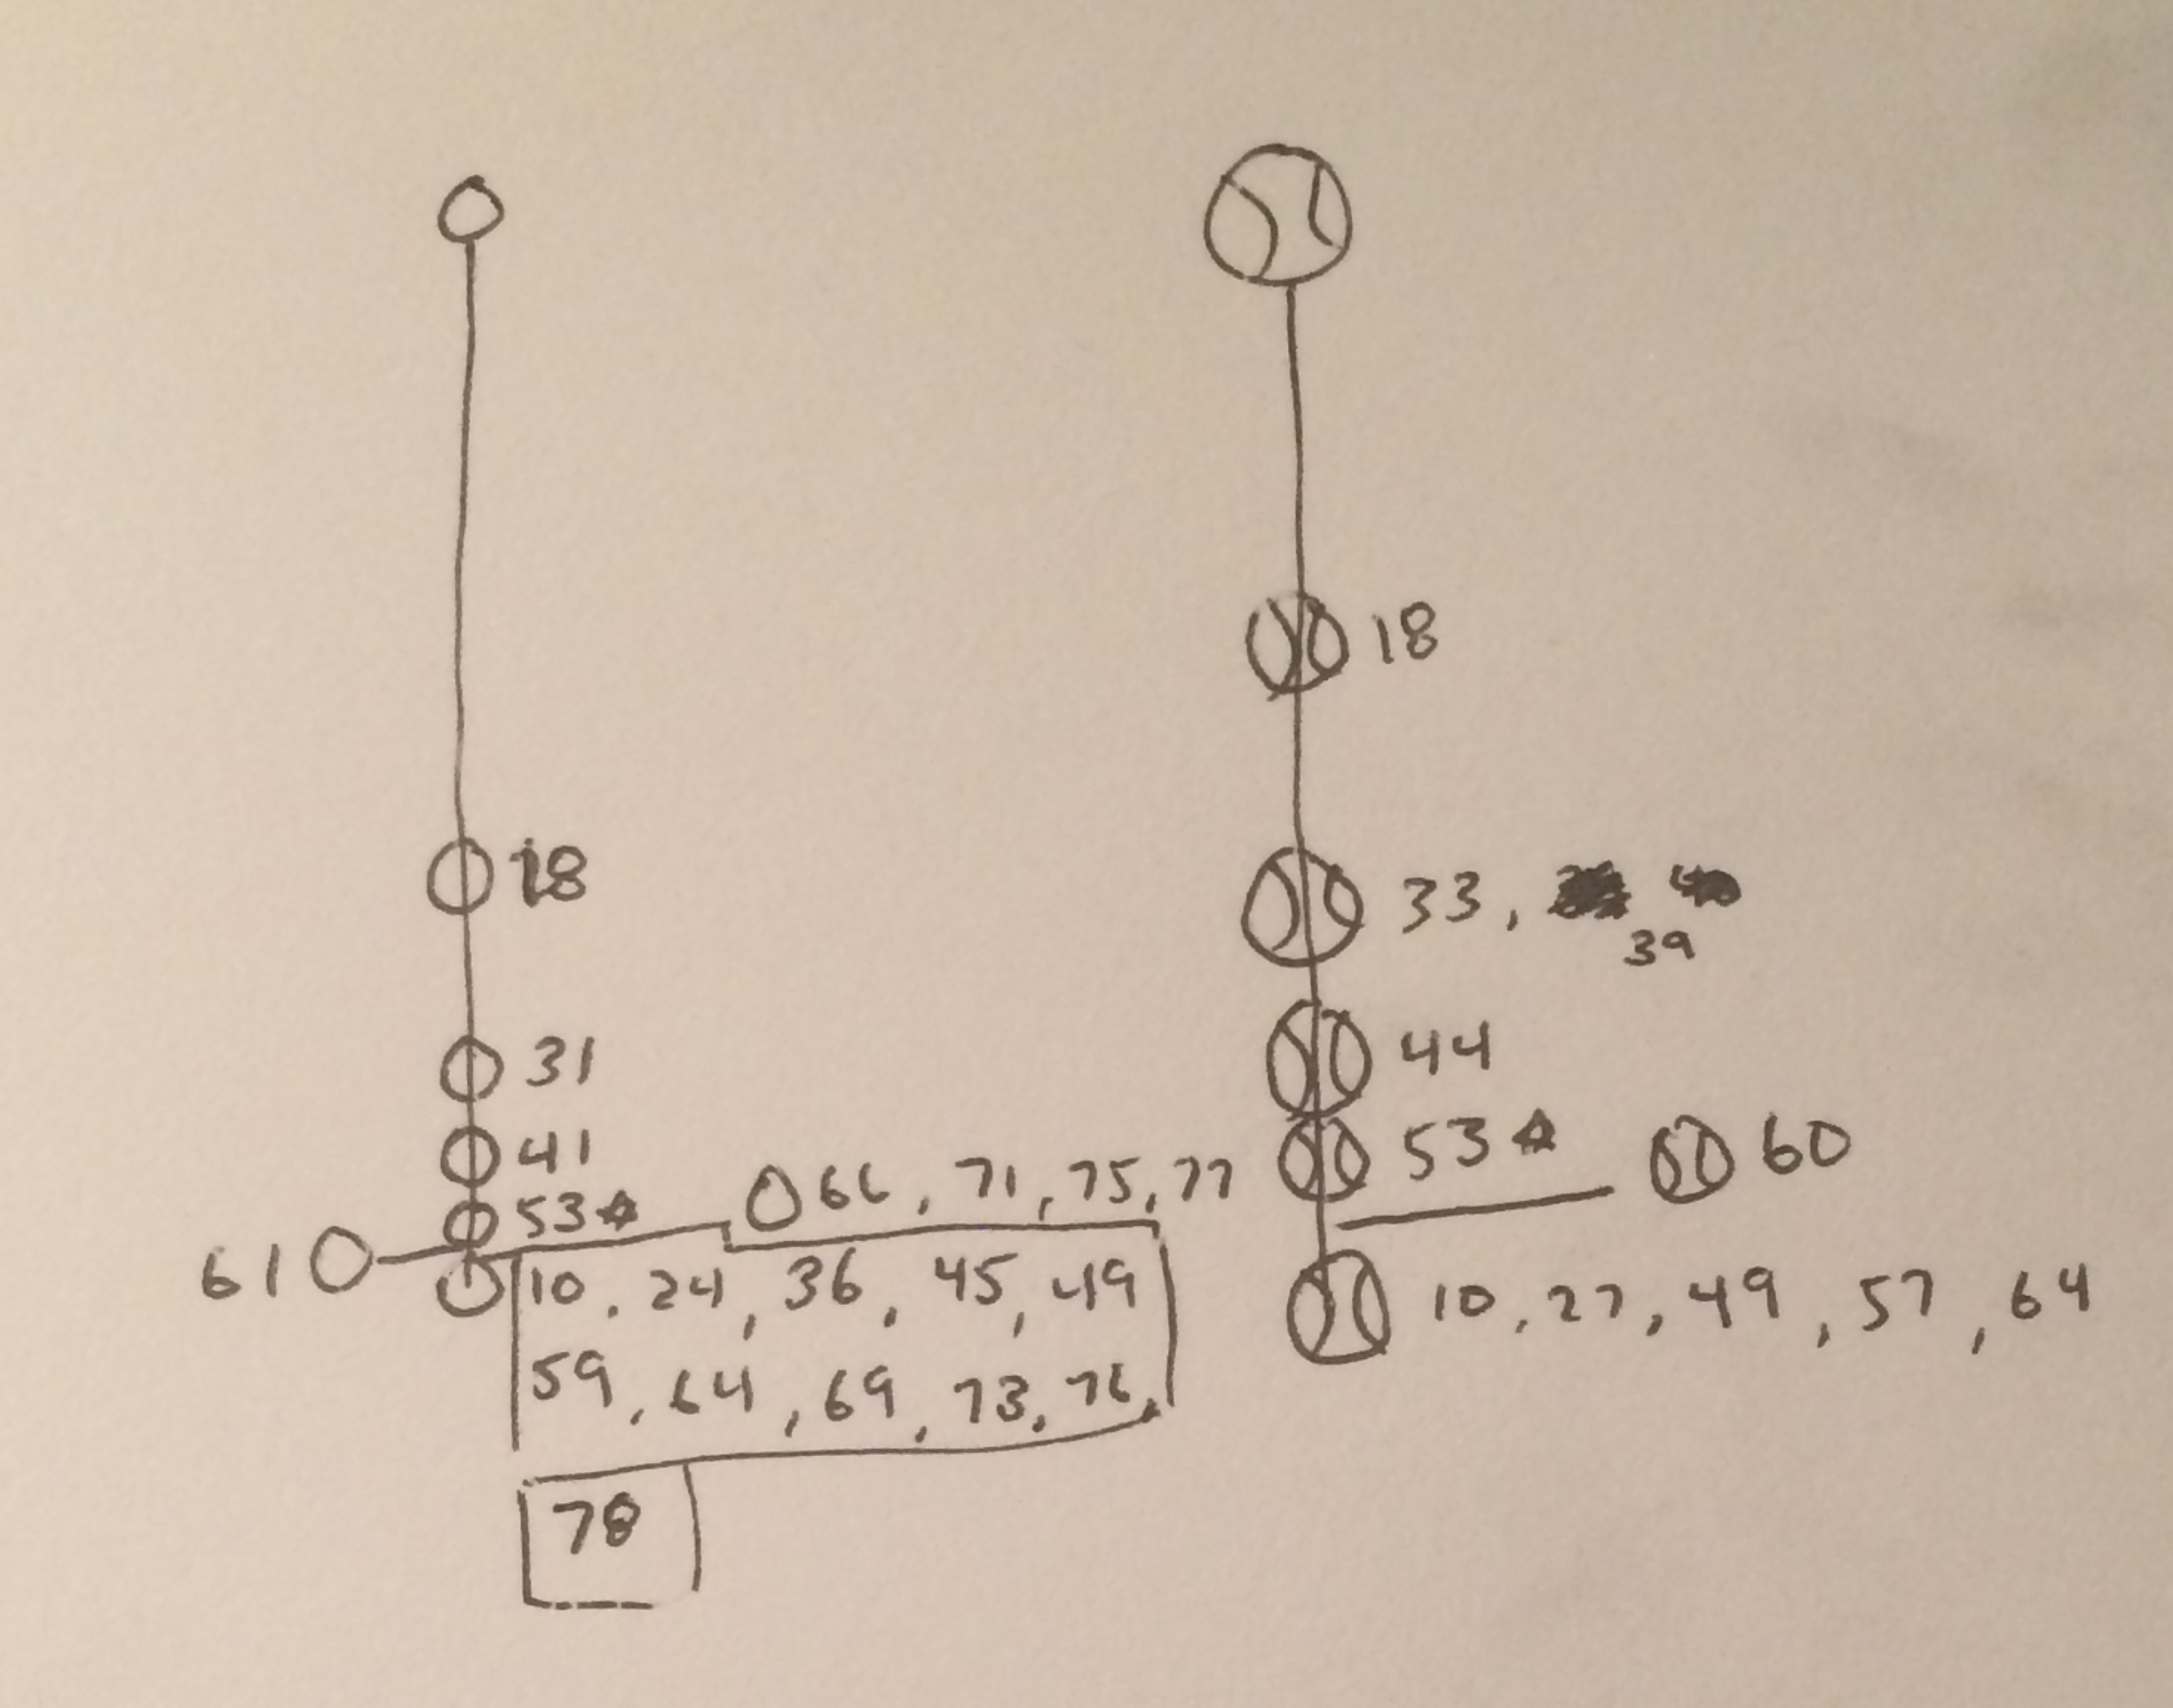 18
31
41
53
66, 71, 75, 77
61
10, 24, 36, 45, 49
59, 64, 69, 73, 76,
78
18
33,
39
44
53
60
10, 27, 49, 57, 64